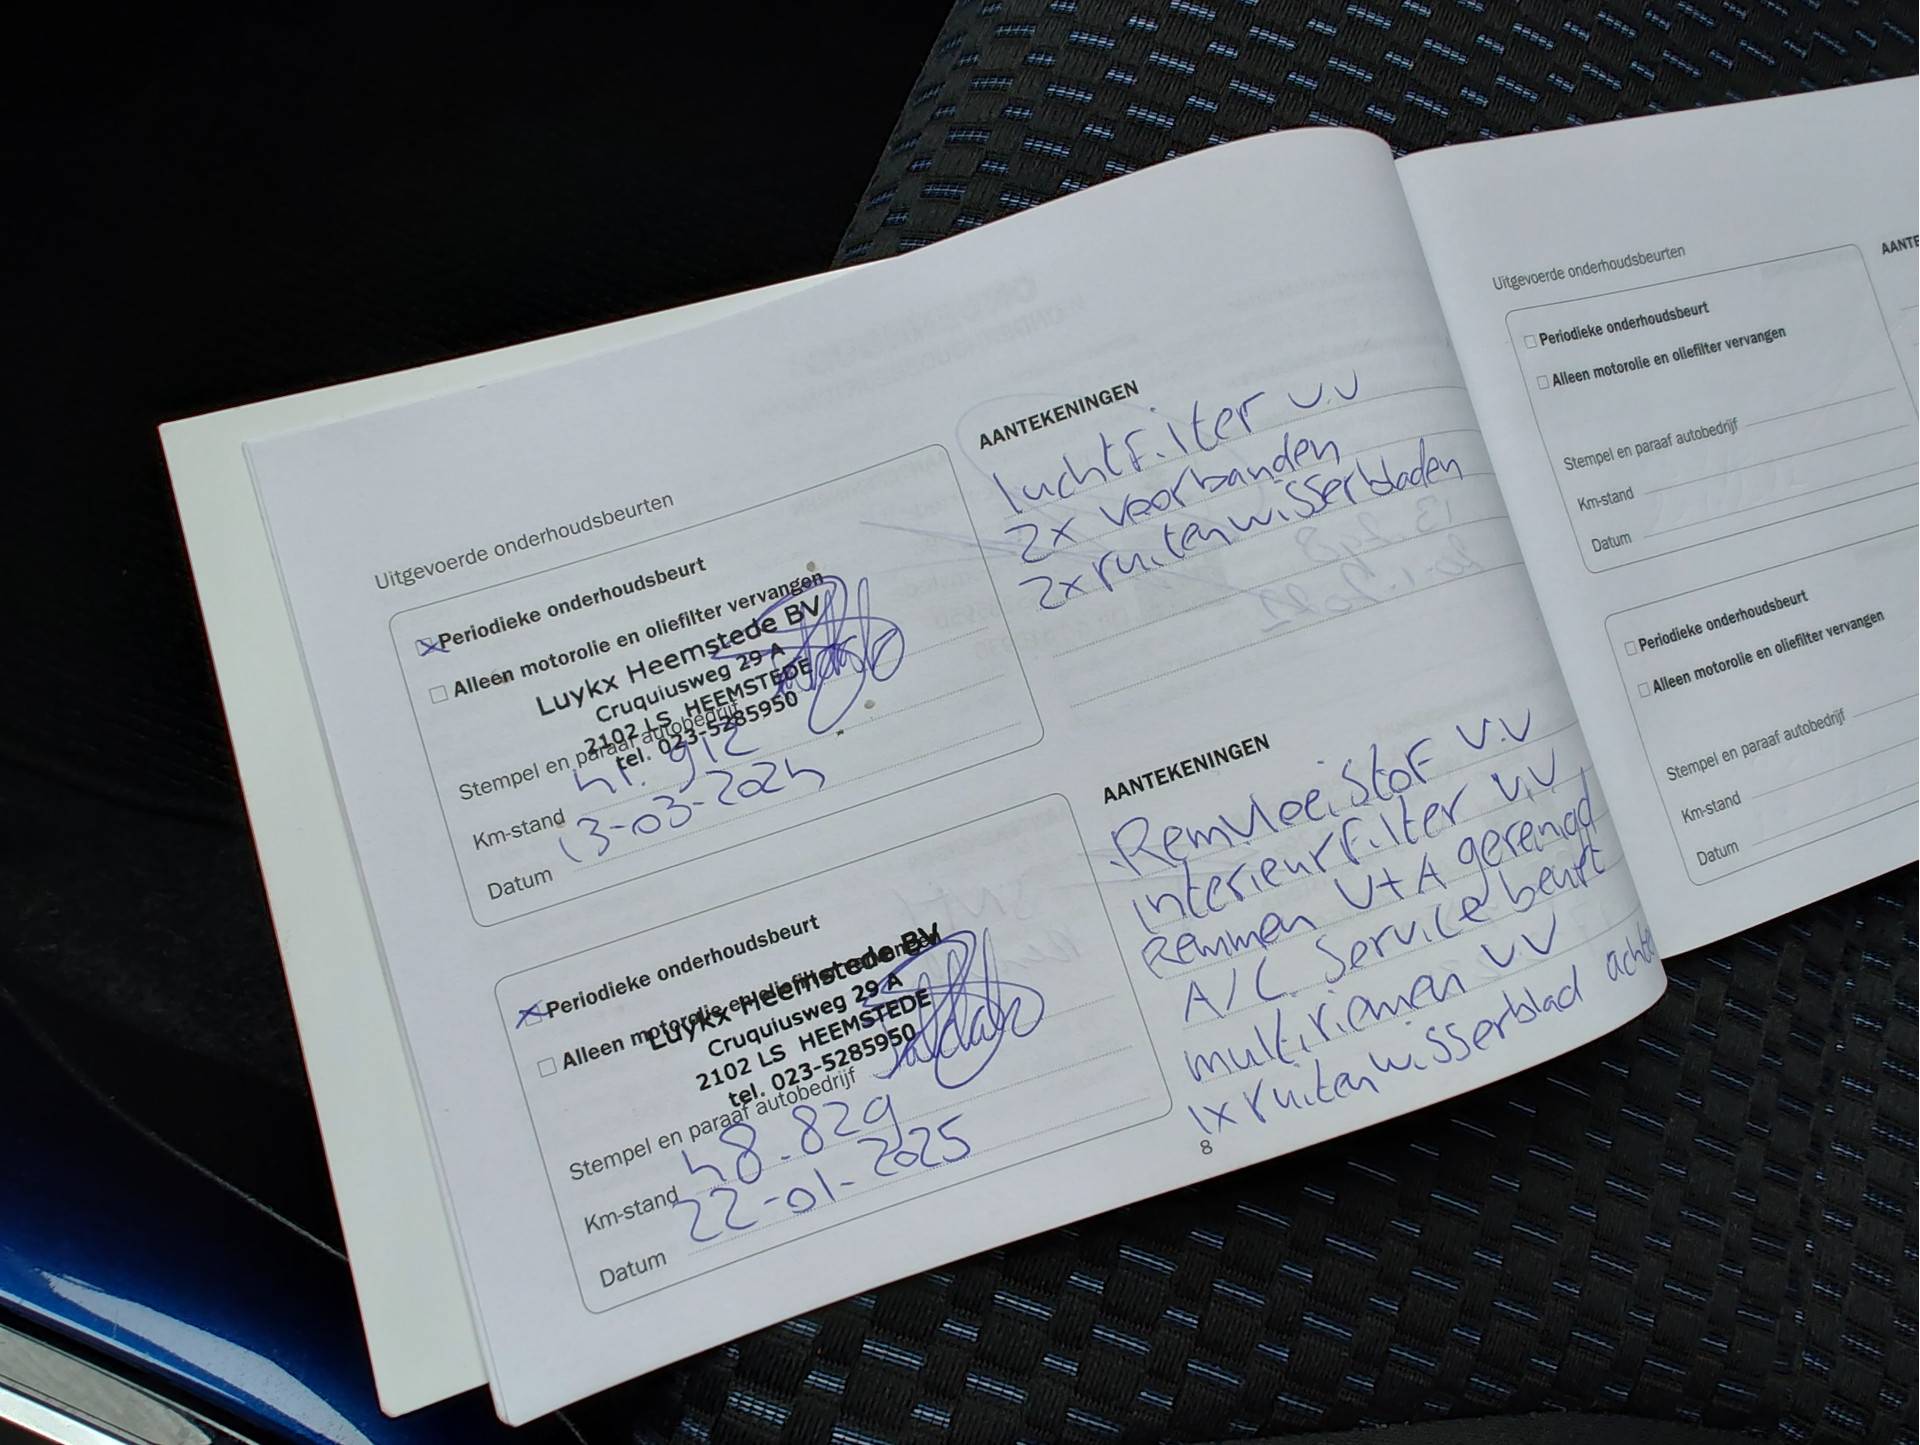 Uitgevoerde onderhoudsbeurten
Periodieke onderhoudsbeurt
Alleen motorolie en oliefilter vervangen
Luykx Heemstede BV
Cruquiusweg 29 A
2102 LS HEEMSTEDE
tel. 023-5285950
Stempel en paraaf autobedrijf
Km-stand 41.912
Datum 13-03-2024
AANTEKENINGEN
luchtfilter v.v
2x voorbanden
2x ruitenwisserbladen
Periodieke onderhoudsbeurt
Alleen motorolie en oliefilter vervangen
Luykx Heemstede BV
Cruquiusweg 29 A
2102 LS HEEMSTEDE
tel. 023-5285950
Stempel en paraaf autobedrijf
Km-stand 48.829
Datum 22-01-2025
AANTEKENINGEN
Remvloeistof v.v
interieurfilter v.v
Remmen V+A gereinigd
A/C Servicebeurt
multiriemen v.v
1x ruitenwisserblad achte
8
Uitgevoerde onderhoudsbeurten
AANTE
Periodieke onderhoudsbeurt
Alleen motorolie en oliefilter vervangen
Stempel en paraaf autobedrijf
Km-stand
Datum
Periodieke onderhoudsbeurt
Alleen motorolie en oliefilter vervangen
Stempel en paraaf autobedrijf
Km-stand
Datum